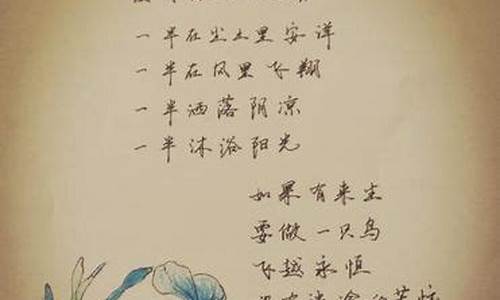 一半在尘土里安详
一半在风里飞翔
一半洒落阴凉
一半沐浴阳光
如果有来生
要做一只鸟
飞越永恒